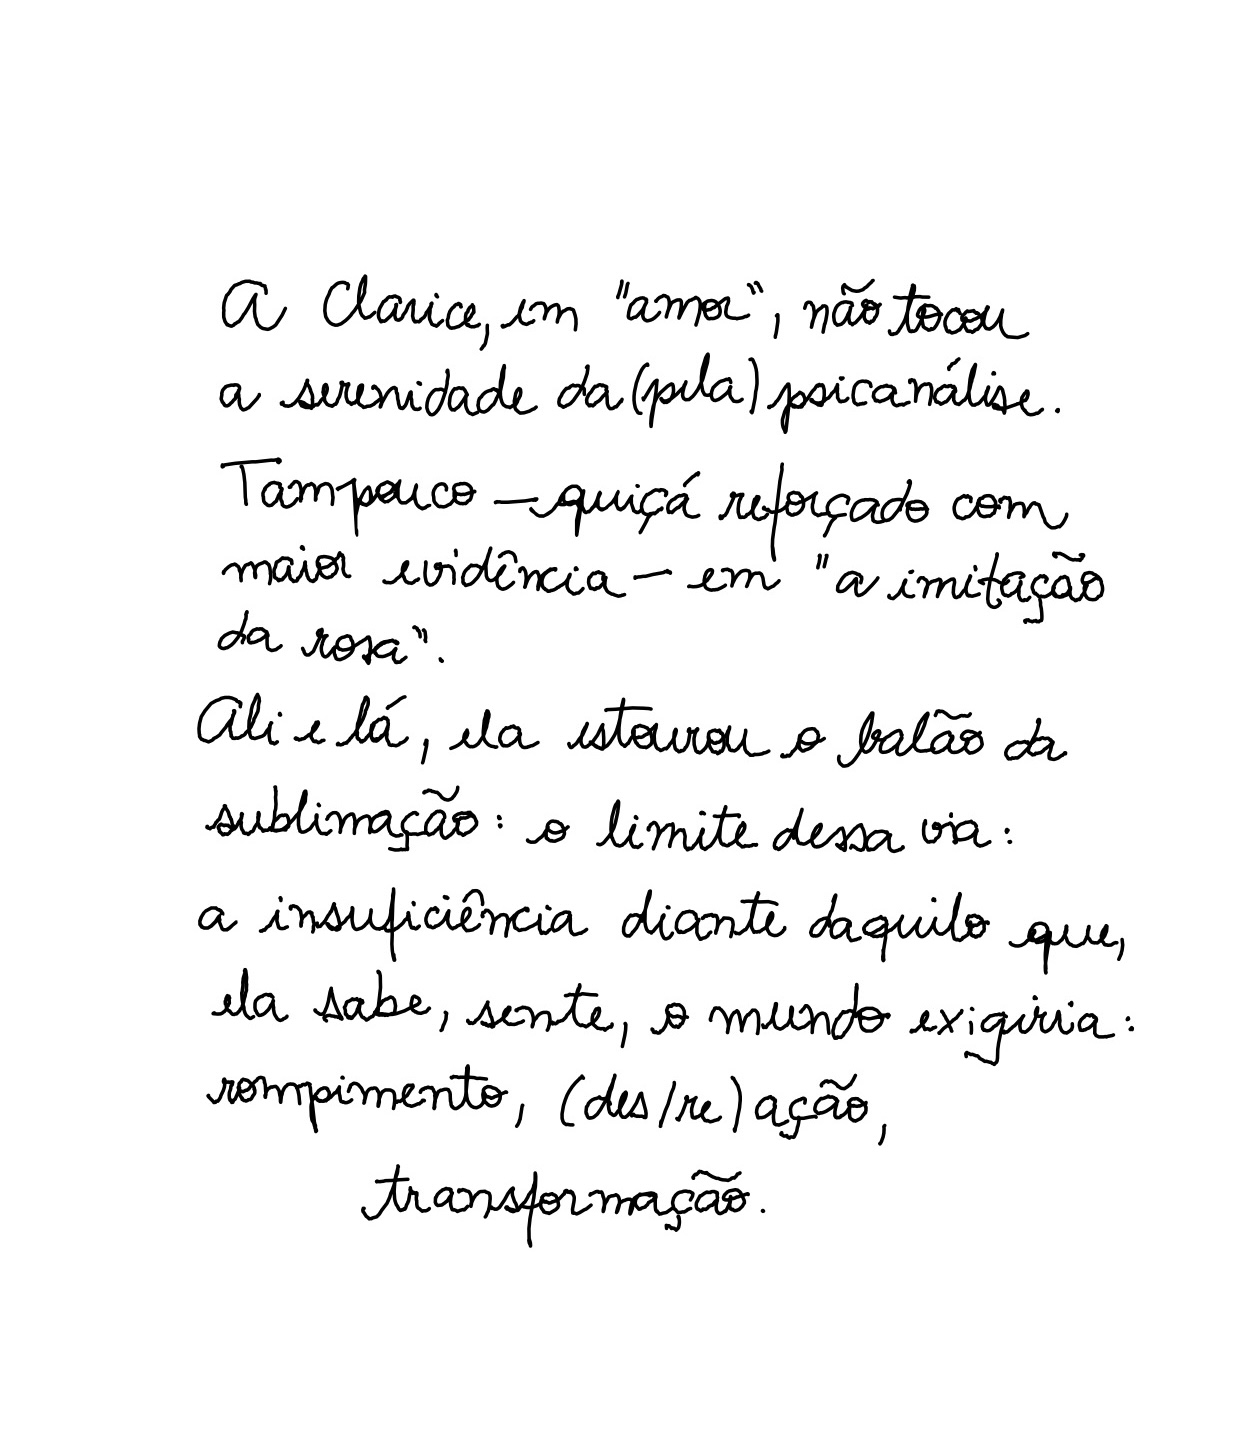 A Clarice, em "amor", não tocou
a serenidade da (pela) psicanálise.
Tampouco — quiçá reforçado com
maior evidência — em "a imitação
da rosa".
Ali e lá, ela estourou o balão da
sublimação: o limite dessa via:
a insuficiência diante daquilo que,
ela sabe, sente, o mundo exigiria:
rompimento, (des/re)ação,
transformação.